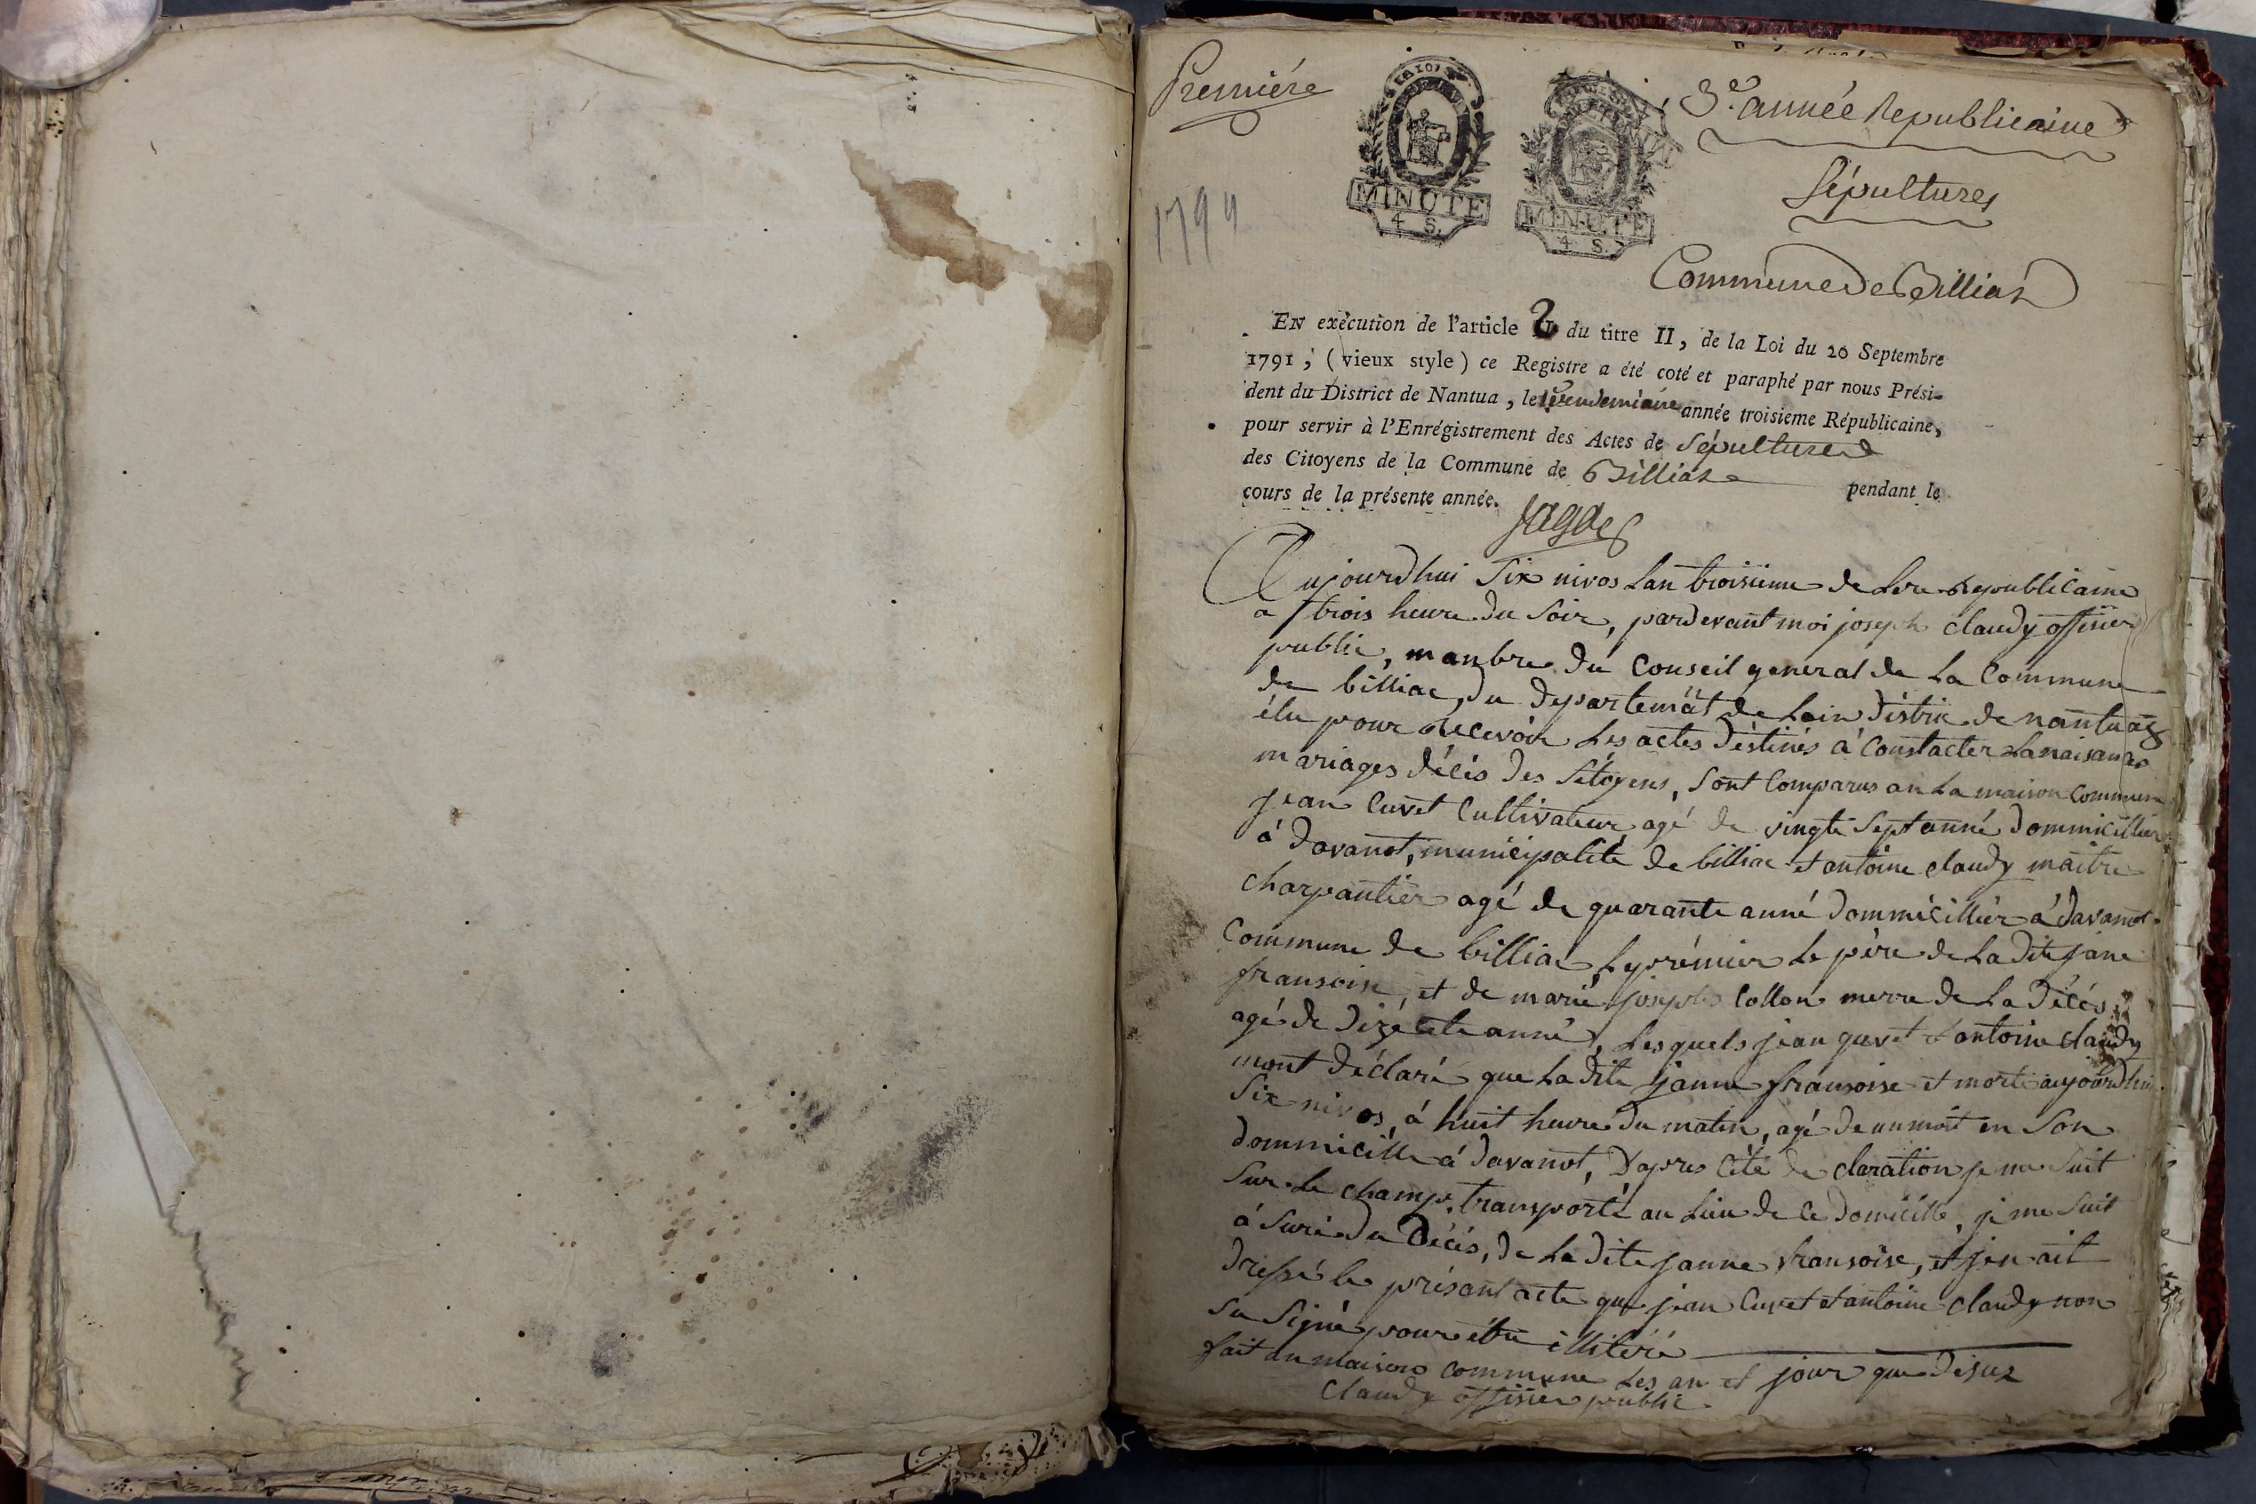 Premiére
3e. année Republicaine
Sépultures
MINUTE
4 S.
MINUTE
4 S.
1794
Commune de Billiat
EN exécution de l'article 2 du titre II, de la Loi du 20 Septembre
1791, (vieux style) ce Registre a été coté et paraphé par nous Prési-
dent du District de Nantua, le vendemiaire année troisieme Républicaine,
pour servir à l'Enrégistrement des Actes de Sépulture
des Citoyens de la Commune de Billiat pendant le
cours de la présente année.
Jagot
Aujourdhui Six nivos Lan troisiéme de Lere Republicaine
a trois heure du Soir, pardevant moi joseph claudy offisier
public, manbre du Conseil general de La Commune
de billiac, du departemat de Lain distric de nantuaz
élu pour Recevoir Les actes déstinés a constacter La naisance
mariages décés des Sitoyens, Sont Comparus an La maison commune
jean Cuvet Cultivateur agé de vingte Sept anné dommicillier
á davanot, municipalité de billiac et antoine claudy maitre
charpantier agé de quarante anné dommicillier á davanot
Commune de billiac, Le prémier Le pére de La dite jane
fransoise, et de marie joseph Collon merre de La décés
agé de anné, Lesquels jean quvet et antoine claudy
mont déclaré que La dite janne fransoise et morte aujourdhui
Six nivos, á huit heure du matin, agé de un moit en Son
dommicille á davanot, Dapres Cété de claration je me Suit
Sur Le champ transporté au Lieu de Ce domicille, je me Suit
á Suré du Décés, de La dite janne fransoise, et jen ait
dressé le présant acte que jean Cuvet et antoine claudy non
Su Signé pour étre illitéré
fait an maison commune Les an et jour que desus
Claudy offisier public